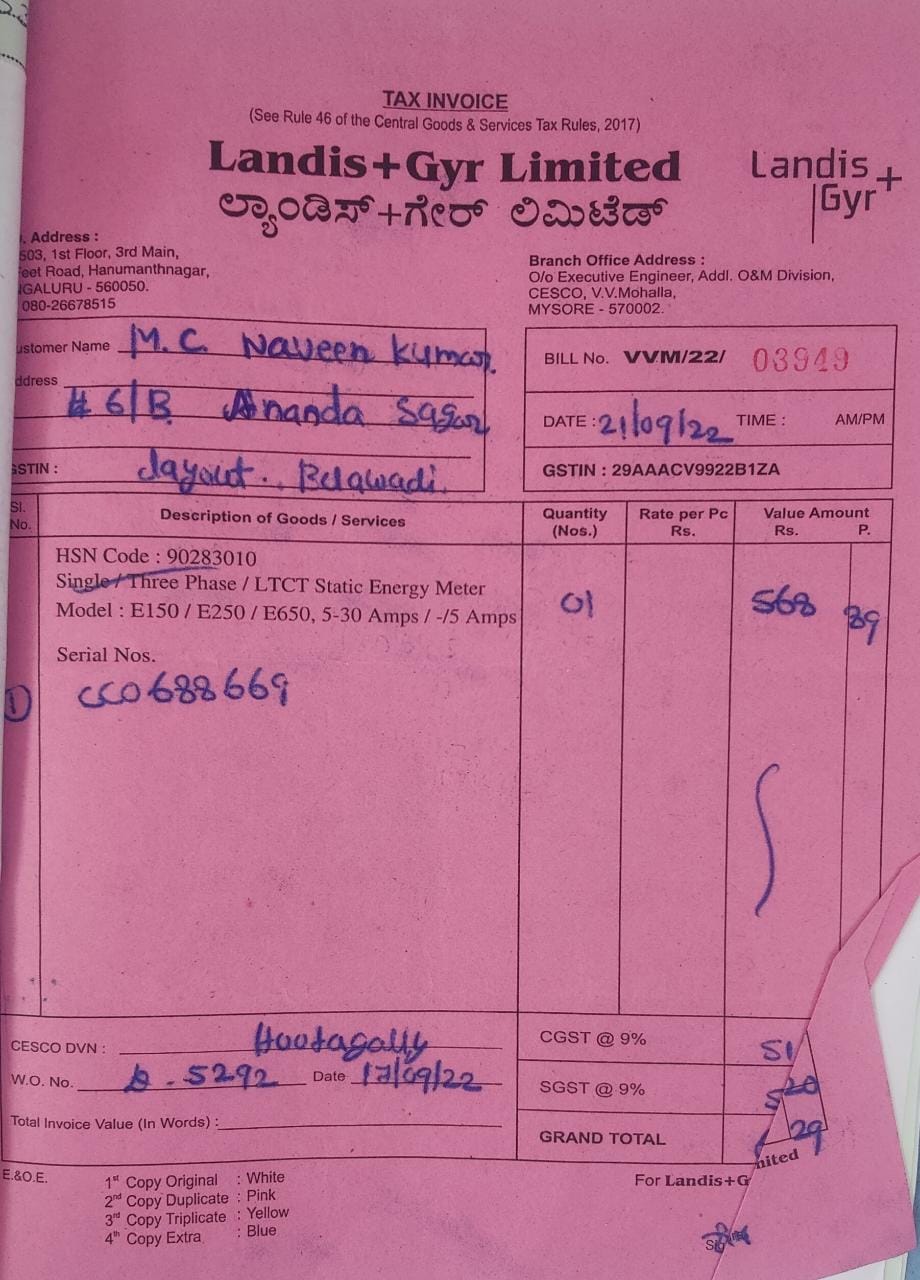 TAX INVOICE
(See Rule 46 of the Central Goods & Services Tax Rules, 2017)
Landis+Gyr Limited
ಲ್ಯಾಂಡಿಸ್+ಗೇರ್ ಲಿಮಿಟೆಡ್
Landis+
Gyr
. Address :
503, 1st Floor, 3rd Main,
eet Road, Hanumanthnagar,
GALURU - 560050.
080-26678515
Branch Office Address :
O/o Executive Engineer, Addl. O&M Division,
CESCO, V.V.Mohalla,
MYSORE - 570002.
ustomer Name M.C. Naveen Kumar.
ddress # 6/B Ananda Sagar
GSTIN : Layout. Belawadi.
BILL No. VVM/22/ 03949
DATE : 21/09/22 TIME : AM/PM
GSTIN : 29AAACV9922B1ZA
Sl. No. Description of Goods / Services Quantity (Nos.) Rate per Pc Rs. Value Amount Rs. P.
HSN Code : 90283010
Single / Three Phase / LTCT Static Energy Meter
Model : E150 / E250 / E650, 5-30 Amps / -/5 Amps 01 568 39
Serial Nos.
1 CC0688669
CESCO DVN : Hootagally
W.O. No. 5292 Date 17/09/22
Total Invoice Value (In Words) :
CGST @ 9% 51
SGST @ 9% 5 20
GRAND TOTAL 29
E.&O.E.
1st Copy Original : White
2nd Copy Duplicate : Pink
3rd Copy Triplicate : Yellow
4th Copy Extra : Blue
For Landis+G
mited